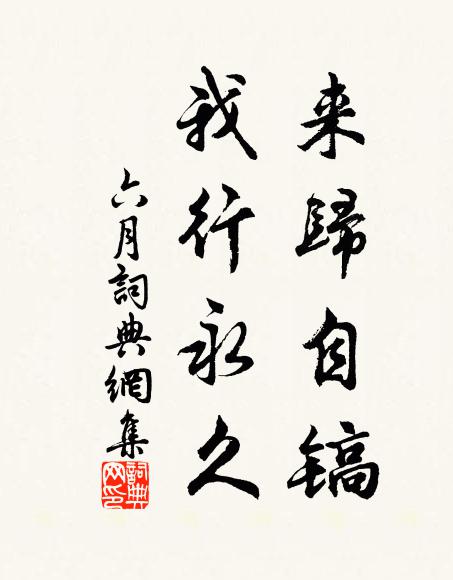 来歸自镐
我行永久
六月詞典網集
詞典网印